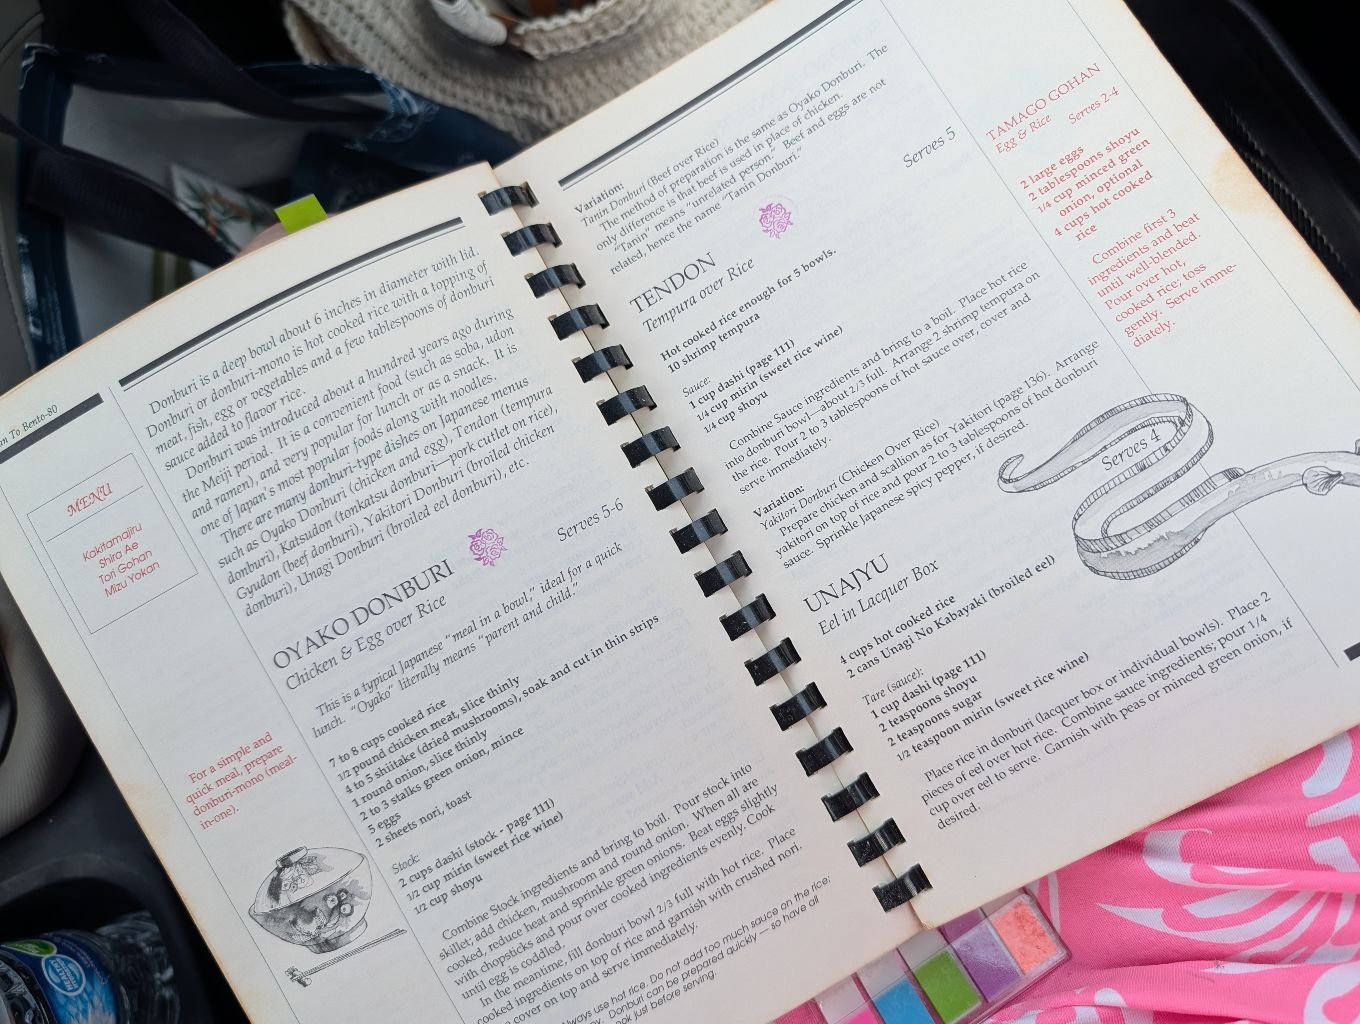 an To Bento-80
MENU
Kakitamajiru
Shira Ae
Tori Gohan
Mizu Yokan
For a simple and
quick meal, prepare
donburi-mono (meal-
in-one).
Donburi is a deep bowl about 6 inches in diameter with lid.
Donburi or donburi-mono is hot cooked rice with a topping of
meat, fish, egg or vegetables and a few tablespoons of donburi
sauce added to flavor rice.
Donburi was introduced about a hundred years ago during
the Meiji period. It is a convenient food (such as soba, udon
and ramen), and very popular for lunch or as a snack. It is
one of Japan's most popular foods along with noodles.
There are many donburi-type dishes on Japanese menus
such as Oyako Donburi (chicken and egg), Tendon (tempura
donburi), Katsudon (tonkatsu donburi—pork cutlet on rice),
Gyudon (beef donburi), Yakitori Donburi (broiled chicken
donburi), Unagi Donburi (broiled eel donburi), etc.
OYAKO DONBURI
Serves 5-6
Chicken & Egg over Rice
This is a typical Japanese "meal in a bowl," ideal for a quick
lunch. "Oyako" literally means "parent and child."
7 to 8 cups cooked rice
1/2 pound chicken meat, slice thinly
4 to 5 shiitake (dried mushrooms), soak and cut in thin strips
1 round onion, slice thinly
2 to 3 stalks green onion, mince
5 eggs
2 sheets nori, toast
Stock:
2 cups dashi (stock - page 111)
1/2 cup mirin (sweet rice wine)
1/2 cup shoyu
Combine Stock ingredients and bring to boil. Pour stock into
skillet; add chicken, mushroom and round onion. When all are
cooked, reduce heat and sprinkle green onions. Beat eggs slightly
with chopsticks and pour over cooked ingredients evenly. Cook
until egg is coddled.
In the meantime, fill donburi bowl 2/3 full with hot rice. Place
cooked ingredients on top of rice and garnish with crushed nori.
cover on top and serve immediately.
lways use hot rice. Do not add too much sauce on the rice;
Donburi can be prepared quickly — so have all
ook just before serving.
Variation:
Tanin Donburi (Beef over Rice)
The method of preparation is the same as Oyako Donburi. The
only difference is that beef is used in place of chicken.
"Tanin" means "unrelated person." Beef and eggs are not
related, hence the name "Tanin Donburi."
TENDON
Serves 5
Tempura over Rice
Hot cooked rice enough for 5 bowls.
10 shrimp tempura
Sauce:
1 cup dashi (page 111)
1/4 cup mirin (sweet rice wine)
1/4 cup shoyu
Combine Sauce ingredients and bring to a boil. Place hot rice
into donburi bowl—about 2/3 full. Arrange 2 shrimp tempura on
the rice. Pour 2 to 3 tablespoons of hot sauce over, cover and
serve immediately.
Variation:
Yakitori Donburi (Chicken Over Rice)
Prepare chicken and scallion as for Yakitori (page 136). Arrange
yakitori on top of rice and pour 2 to 3 tablespoons of hot donburi
sauce. Sprinkle Japanese spicy pepper, if desired.
UNAJYU
Serves 4
Eel in Lacquer Box
4 cups hot cooked rice
2 cans Unagi No Kabayaki (broiled eel)
Tare (sauce):
1 cup dashi (page 111)
2 teaspoons shoyu
2 teaspoons sugar
1/2 teaspoon mirin (sweet rice wine)
Place rice in donburi (lacquer box or individual bowls). Place 2
pieces of eel over hot rice. Combine sauce ingredients; pour 1/4
cup over eel to serve. Garnish with peas or minced green onion, if
desired.
TAMAGO GOHAN
Egg & Rice Serves 2-4
2 large eggs
2 tablespoons shoyu
1/4 cup minced green
onion, optional
4 cups hot cooked
rice
Combine first 3
ingredients and beat
until well-blended.
Pour over hot,
cooked rice; toss
gently. Serve imme-
diately.